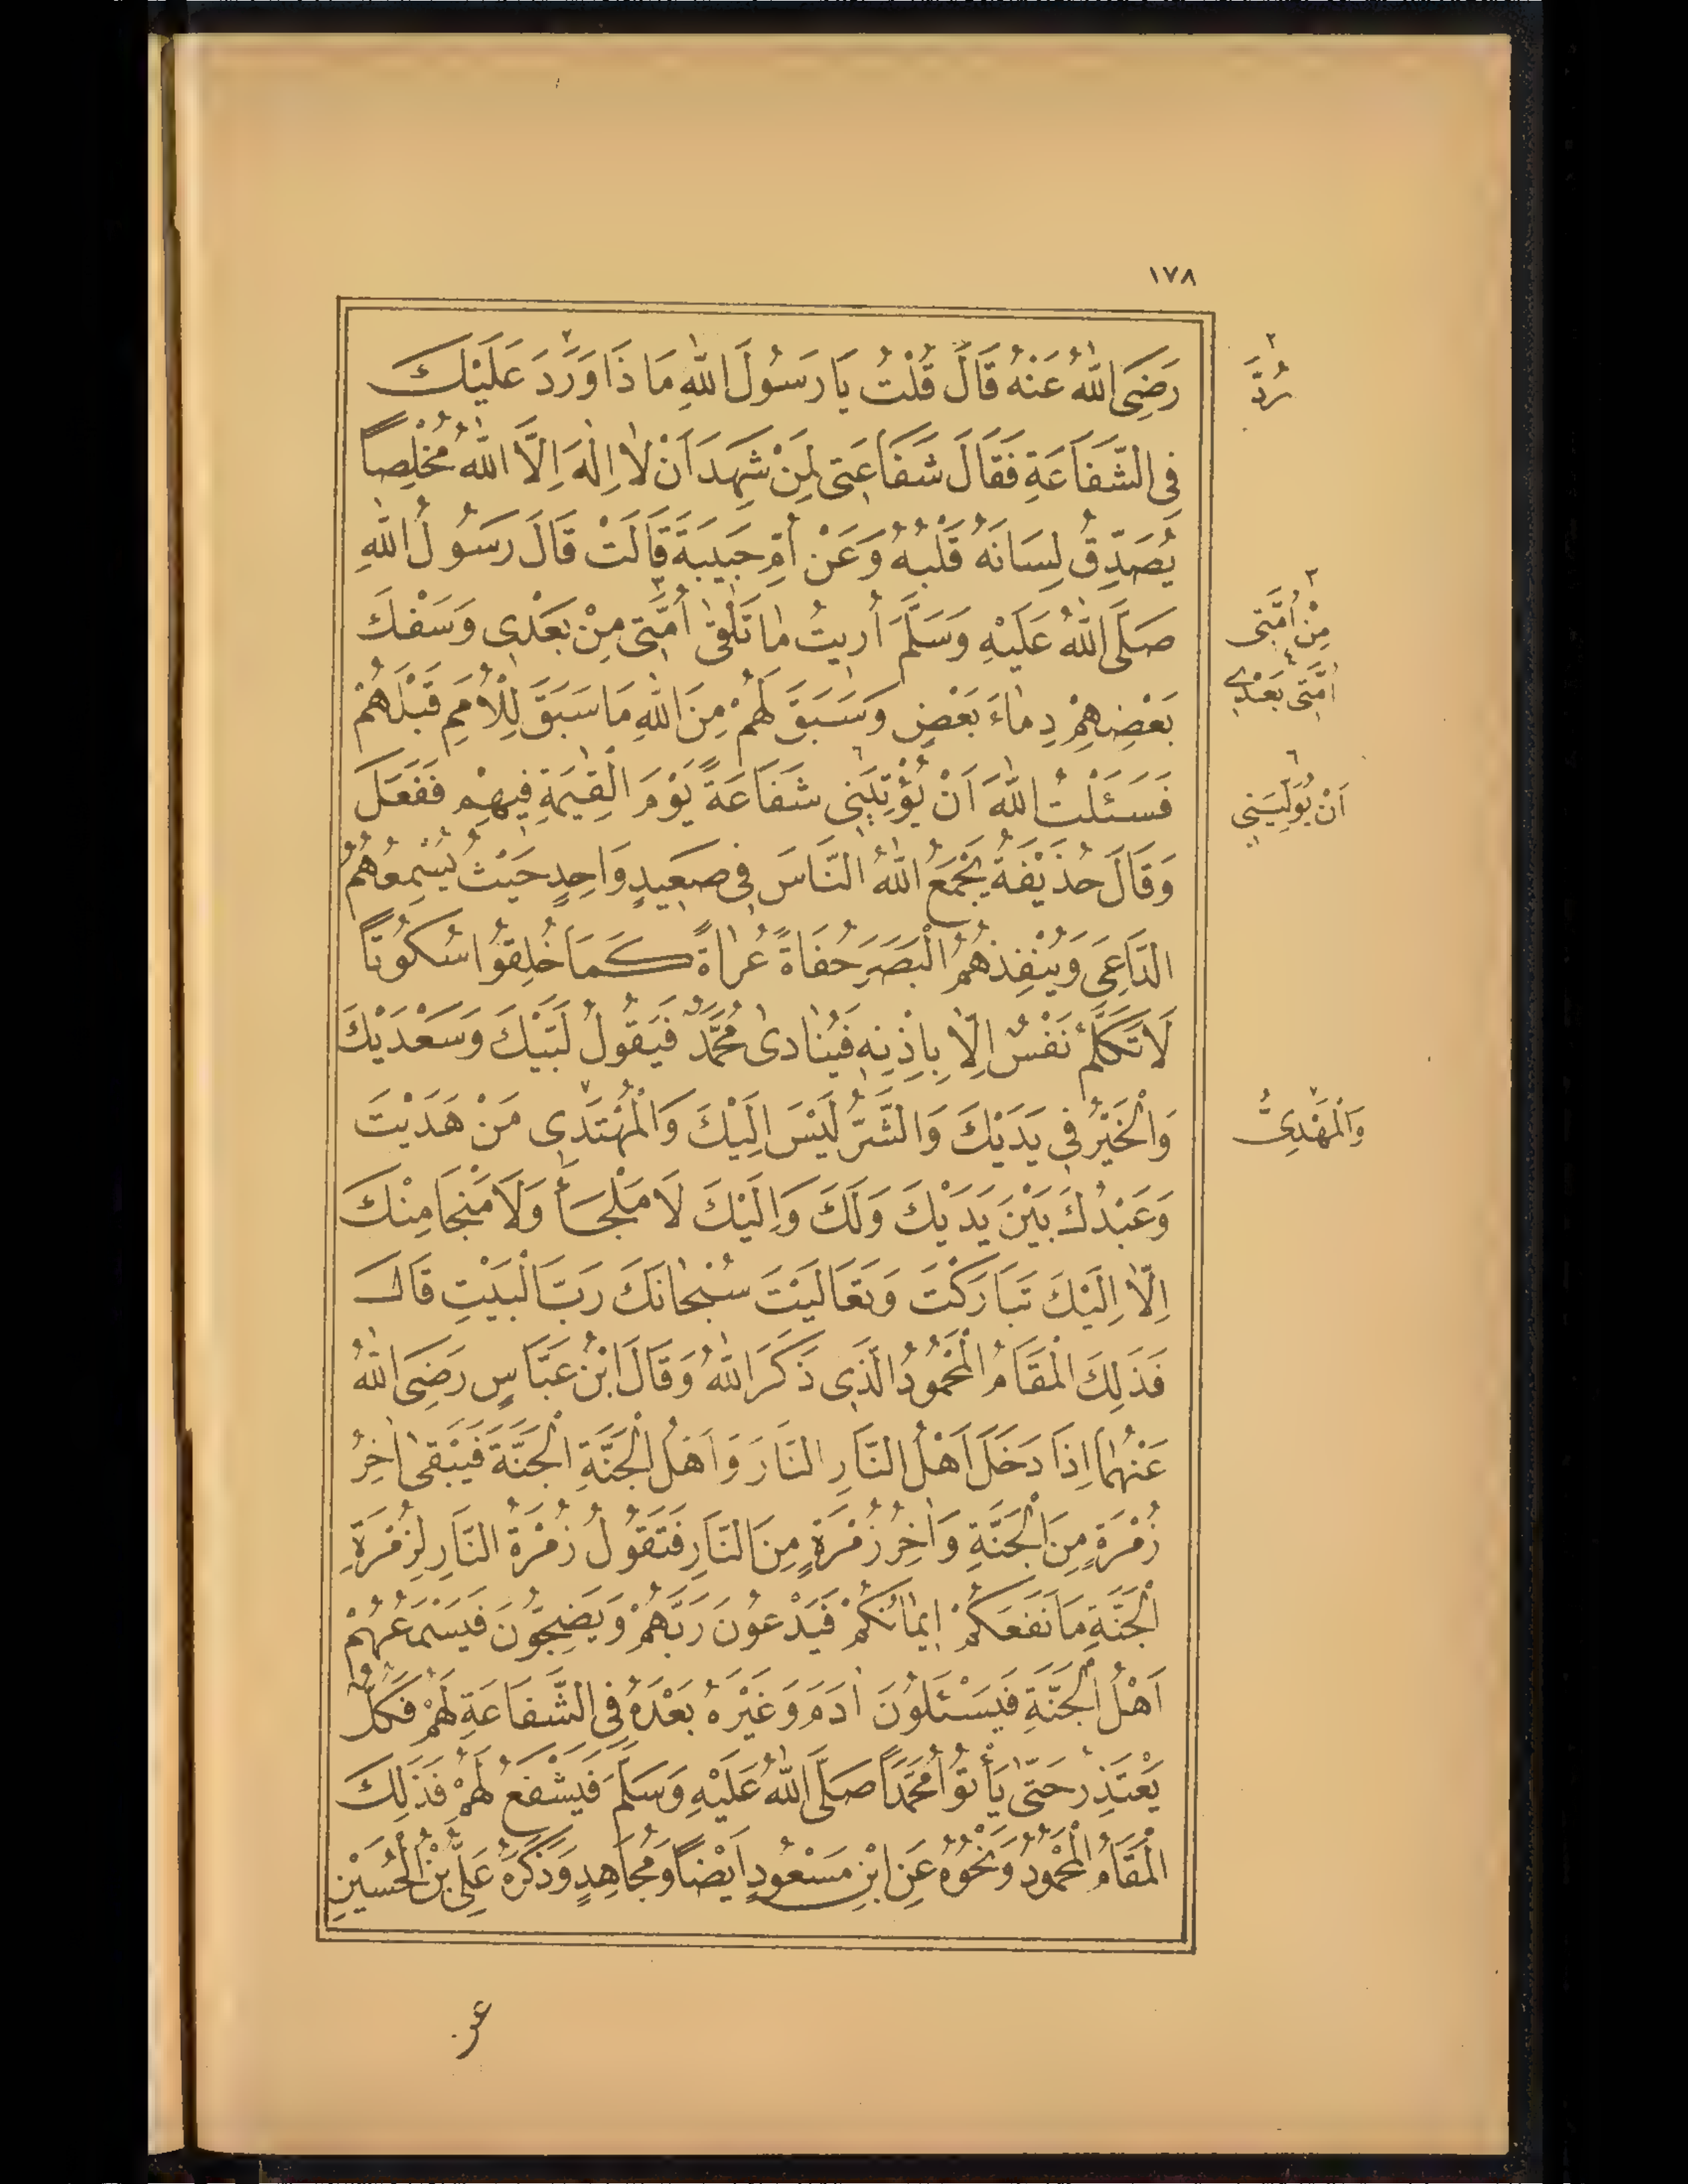 ١٧٨
رَضِيَ اللّٰهُ عَنْهُ قَالَ قُلْتُ يَا رَسُولَ اللّٰهِ مَا ذَا وَرَدَ عَلَيْكَ
فِى الشَّفَاعَةِ فَقَالَ شَفَاعَتِى لِمَنْ شَهِدَ اَنْ لَا اِلٰهَ اِلَّا اللّٰهُ مُخْلِصاً
يُصَدِّقُ لِسَانَهُ قَلْبُهُ وَعَنْ اُمِّ حَبِيبَةَ قَالَتْ قَالَ رَسُولُ اللّٰهِ
صَلَّى اللّٰهُ عَلَيْهِ وَسَلَّمَ اُرِيتُ مَا تَلْقٰى اُمَّتِى مِنْ بَعْدِى وَسَفْكَ
بَعْضِهِمْ دِمَاءَ بَعْضٍ وَسَبَقَ لَهُمْ مِنَ اللّٰهِ مَا سَبَقَ لِلْاُمَمِ قَبْلَهُمْ
فَسَئَلْتُ اللّٰهَ اَنْ يُؤْتِيَنِي شَفَاعَةً يَوْمَ الْقِيٰمَةِ فِيهِمْ فَفَعَلَ
وَقَالَ حُذَيْفَةُ يَجْمَعُ اللّٰهُ النَّاسَ فِى صَعِيدٍ وَاحِدٍ حَيْثُ يُسْمِعُهُمُ
الدَّاعِى وَيُنْفِذُهُمُ الْبَصَرَ حُفَاةً عُرَاةً كَمَا خُلِقُوا سُكُوتاً
لَا تَكَلَّمُ نَفْسٌ اِلَّا بِاِذْنِهِ فَيُنَادٰى مُحَمَّدٌ فَيَقُولُ لَبَّيْكَ وَسَعْدَيْكَ
وَالْخَيْرُ فِي يَدَيْكَ وَالشَّرُّ لَيْسَ اِلَيْكَ وَالْمُهْتَدِى مَنْ هَدَيْتَ
وَعَبْدُكَ بَيْنَ يَدَيْكَ وَلَكَ وَاِلَيْكَ لَا مَلْجَأَ وَلَا مَنْجَا مِنْكَ
اِلَّا اِلَيْكَ تَبَارَكْتَ وَتَعَالَيْتَ سُبْحَانَكَ رَبَّ الْبَيْتِ قَالَ
فَذَلِكَ الْمَقَامُ الْمَحْمُودُ الَّذِى ذَكَرَ اللّٰهُ وَقَالَ ابْنُ عَبَّاسٍ رَضِىَ اللّٰهُ
عَنْهُمَا اِذَا دَخَلَ اَهْلُ النَّارِ النَّارَ وَاَهْلُ الْجَنَّةِ الْجَنَّةَ فَيَبْقٰى اٰخِرُ
زُمْرَةٍ مِنَ الْجَنَّةِ وَاٰخِرُ زُمْرَةٍ مِنَ النَّارِ فَتَقُولُ زُمْرَةُ النَّارِ لِزُمْرَةِ
الْجَنَّةِ مَا نَفَعَكُمْ اِيمَانُكُمْ فَيَدْعُونَ رَبَّهُمْ وَيَضِجُّونَ فَيَسْمَعُهُمْ
اَهْلُ الْجَنَّةِ فَيَسْئَلُونَ اٰدَمَ وَغَيْرَهُ بَعْدَهُ فِى الشَّفَاعَةِ لَهُمْ فَكُلٌّ
يَعْتَذِرُ حَتّٰى يَأْتُوا مُحَمَّداً صَلَّى اللّٰهُ عَلَيْهِ وَسَلَّمَ فَيَشْفَعُ لَهُمْ فَذَلِكَ
الْمَقَامُ الْمَحْمُودُ وَنَحْوُهُ عَنِ ابْنِ مَسْعُودٍ اَيْضاً وَمُجَاهِدٍ وَذَكَرَهُ عَلِىُّ بْنُ الْحُسَيْنِ
٢
رُدَّ
٣
مِنْ اُمَّتِى
٤
اُمَّتِى بَعْدِى
٦
اَنْ يُوَلِّيَنِي
٧
وَالْمَهْدِىُّ
عن